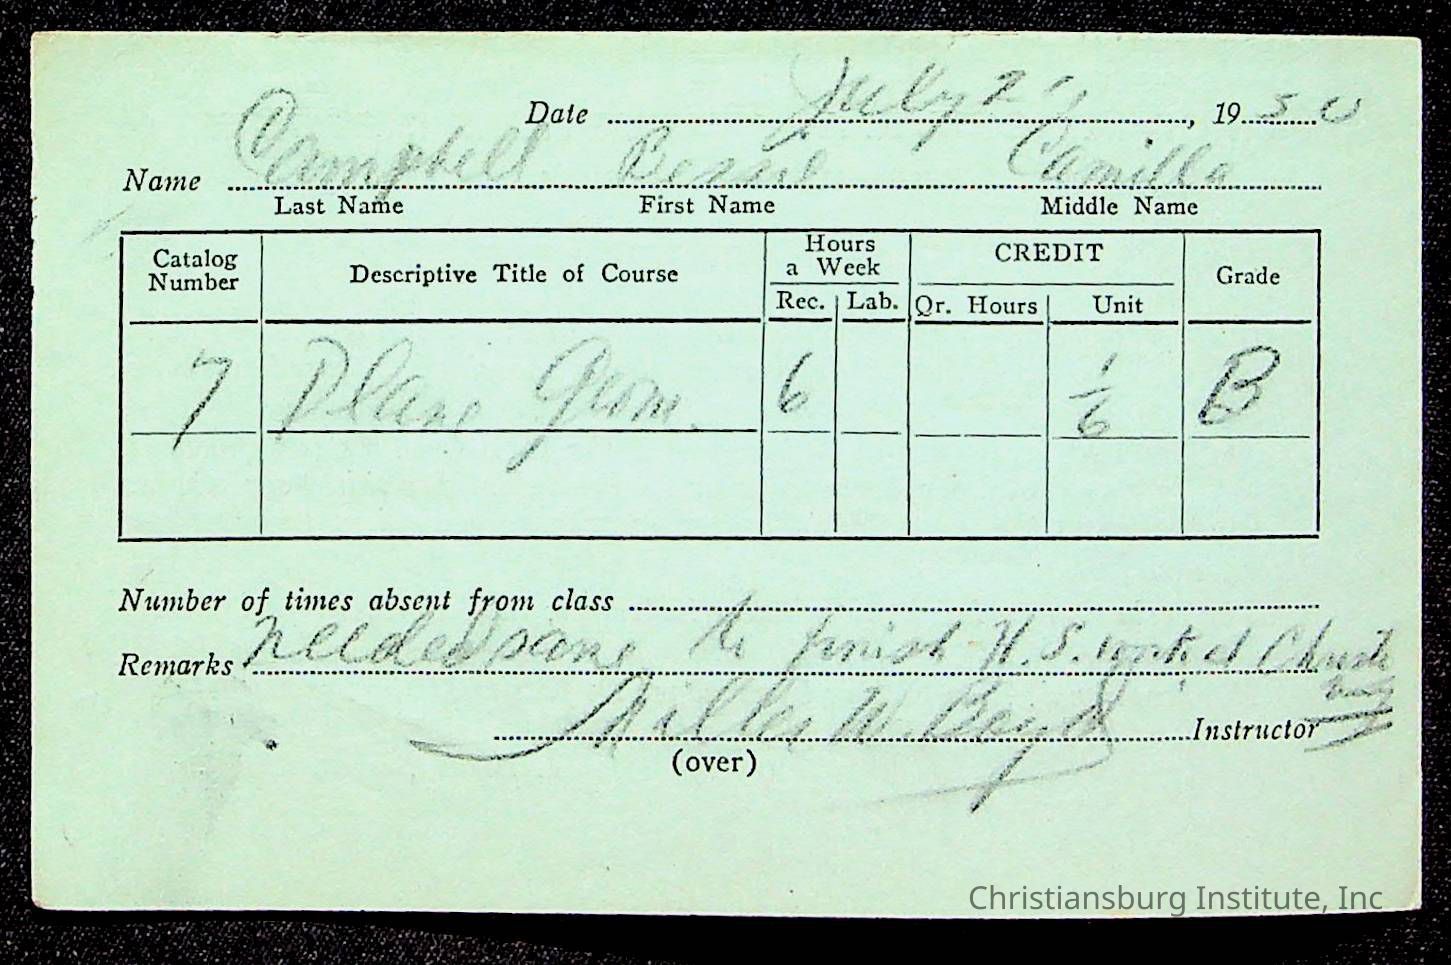 Date July 21, 1950
Name Campbell Bessie Camilla
Last Name First Name Middle Name
Catalog Number Descriptive Title of Course Hours a Week Rec. Lab. CREDIT Qr. Hours Unit Grade
7 Plane Geom. 6 1/6 B
Number of times absent from class
Remarks Needed same to finish H. S. work at Christi
burg
Willa W. Boyd Instructor
(over)
Christiansburg Institute, Inc